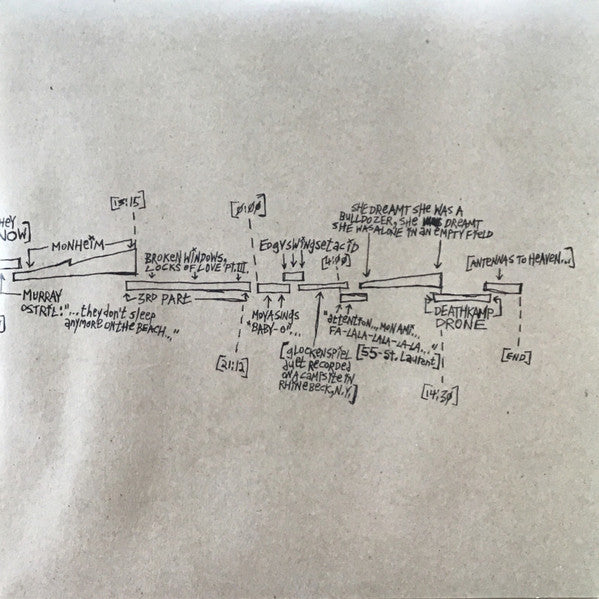 HEY
NOW]
MONHEIM
[13:15]
BROKEN WINDOWS,
LOCKS OF LOVE PT. III.
[0:00]
EdgyswingsetacId
[4:00]
SHE DREAMT SHE WAS A
BULLDOZER, SHE DREAMT
SHE WAS ALONE IN an EMPTY FIELD
[ANTENNAS TO HEAVEN...]
MURRAY
OSTRIL: "...they don't sleep
anymore on the BEACH..."
3RD PART
[21:12]
MOYA SINGS
"BABY-O"...
[glOCKENSPIEL
duET RECORDED
ON A CAMPSITE IN
RHINEBECK, N.Y.]
"attention... MON AMI...
FA-LALA-LALA-LA-LA..."
[55-St. Laurent]
DEATHKAMP
DRONE
[14:30]
[END]